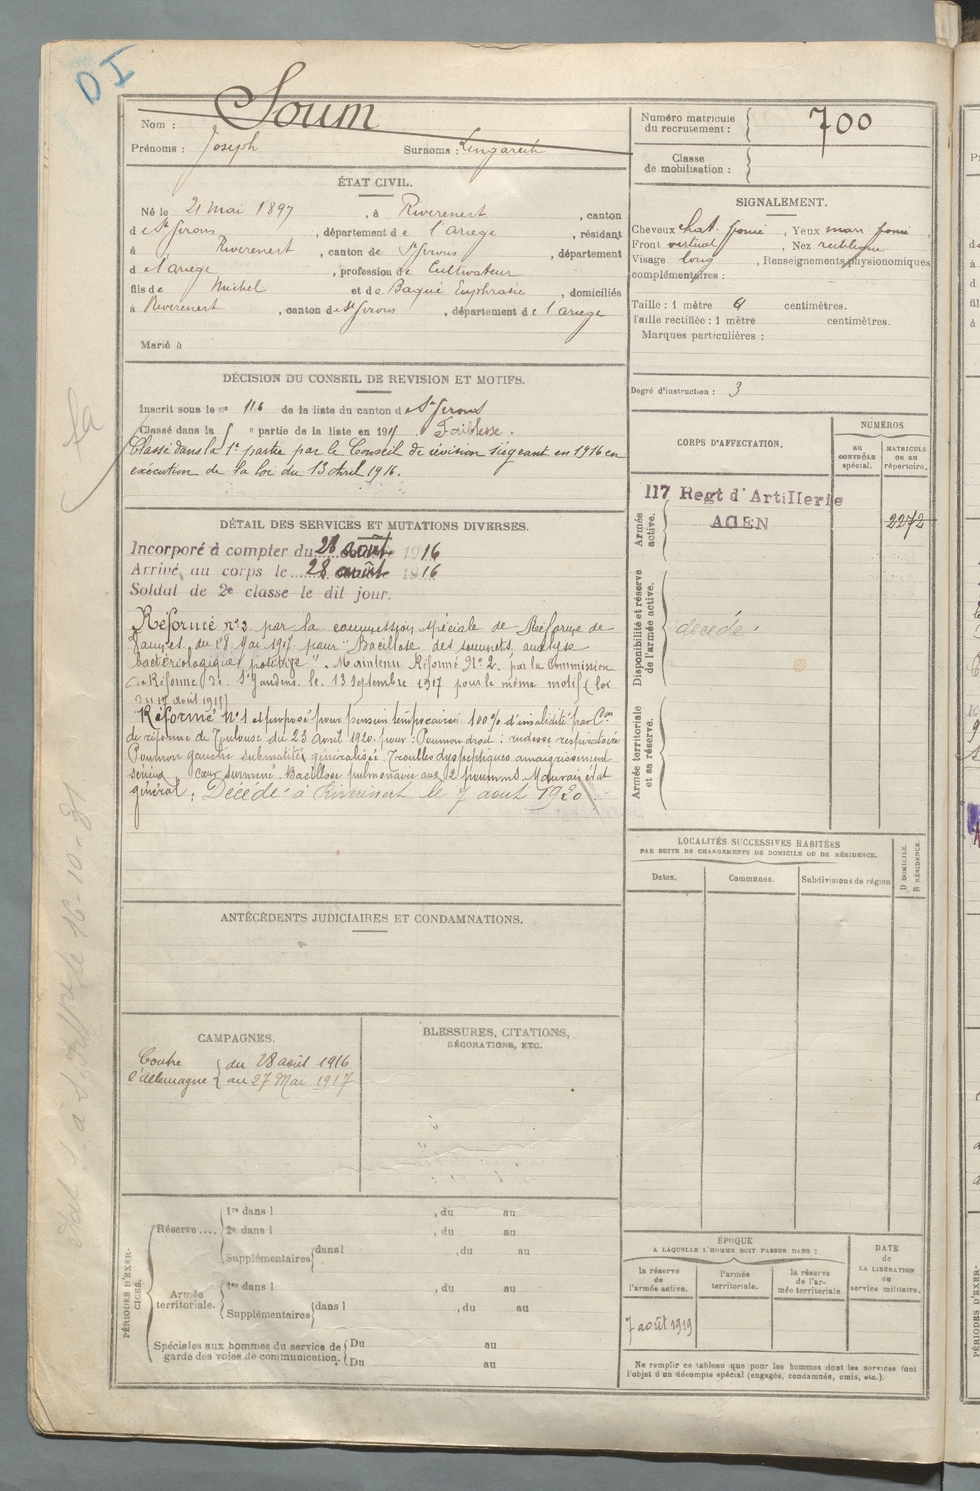 DI
Nom : Soum
Prénoms : Joseph Surnoms :
ÉTAT CIVIL.
Né le 21 Mai 1897, à Riverenert, canton
de St Girons, département de l'Ariège, résidant
à Riverenert, canton de St Girons, département
d e l'ariège, profession de Cultivateur
fils de Michel et de Baqué Euphrasie, domiciliés
à Riverenert, canton de St Girons, département de l'ariège
Marié à
DÉCISION DU CONSEIL DE REVISION ET MOTIFS.
Inscrit sous le n° 116 de la liste du canton de St Girons
Classé dans la 5 e partie de la liste en 191 . Faiblesse.
Classé dans la 1e partie par le Conseil de révision siégeant en 1916 en
exécution de la loi du 13 Avril 1916.
DÉTAIL DES SERVICES ET MUTATIONS DIVERSES.
Incorporé à compter du 28 août 1916
Arrivé au corps le 28 août 1916
Soldat de 2e classe le dit jour.
Réformé n° 2 par la commission spéciale de Réforme de
du 28 Mai 1917 pour "Bacillose des sommets, analyse
bactériologique positive". Maintenu Réformé N° 2 par la Commission
de Réforme de St Gaudens le 13 septembre 1917 pour le même motif (loi
du 17 août 1915)
Réformé N° 1 et proposé pour pension temporaire 100% d'invalidité par Con
de réforme de Toulouse du 23 Avril 1920 pour : Poumon droit : rudesse respiratoire
Poumon gauche submatité généralisée. Troubles dyspeptiques amaigrissement
sérieux cœur surmené. Bacillose pulmonaire aux 2 poumons. Mauvais état
général. Décédé à Riverenert le 7 aout 1920
ANTÉCÉDENTS JUDICIAIRES ET CONDAMNATIONS.
CAMPAGNES.
Contre l'Allemagne { du 28 août 1916
au 27 Mai 1917
BLESSURES, CITATIONS,
DÉCORATIONS, ETC.
PÉRIODES D'EXERCICES.
Réserve .... 1re dans l , du au
2e dans l , du au
Supplémentaires dans l , du au
Armée territoriale. 1re dans l , du au
Supplémentaires dans l , du au
Spéciales aux hommes du service de garde des voies de communication. Du au
Du au
Numéro matricule
du recrutement : 700
Classe
de mobilisation :
SIGNALEMENT.
Cheveux chat. foncé, Yeux marr. foncé
Front vertical, Nez rectiligne
Visage long, Renseignements physionomiques
complémentaires :
Taille : 1 mètre 61 centimètres.
Taille rectifiée : 1 mètre centimètres.
Marques particulières :
Degré d'instruction : 3
CORPS D'AFFECTATION.
NUMÉROS
au CONTRÔLE spécial.
MATRICULE ou au répertoire.
Armée active.
117 Regt d'Artillerie
AGEN
2272
Disponibilité et réserve de l'armée active.
décédé
Armée territoriale et sa réserve.
LOCALITÉS SUCCESSIVES HABITÉES
PAR SUITE DE CHANGEMENTS DE DOMICILE OU DE RÉSIDENCE.
Dates. Communes. Subdivisions de région
D DOMICILE. R RÉSIDENCE.
ÉPOQUE
A LAQUELLE L'HOMME DOIT PASSER DANS :
la réserve de l'armée active.
l'armée territoriale.
la réserve de l'armée territoriale.
DATE de LA LIBÉRATION du service militaire.
7 août 1919
Ne remplir ce tableau que pour les hommes dont les services font
l'objet d'un décompte spécial (engagés, condamnés, omis, etc.).